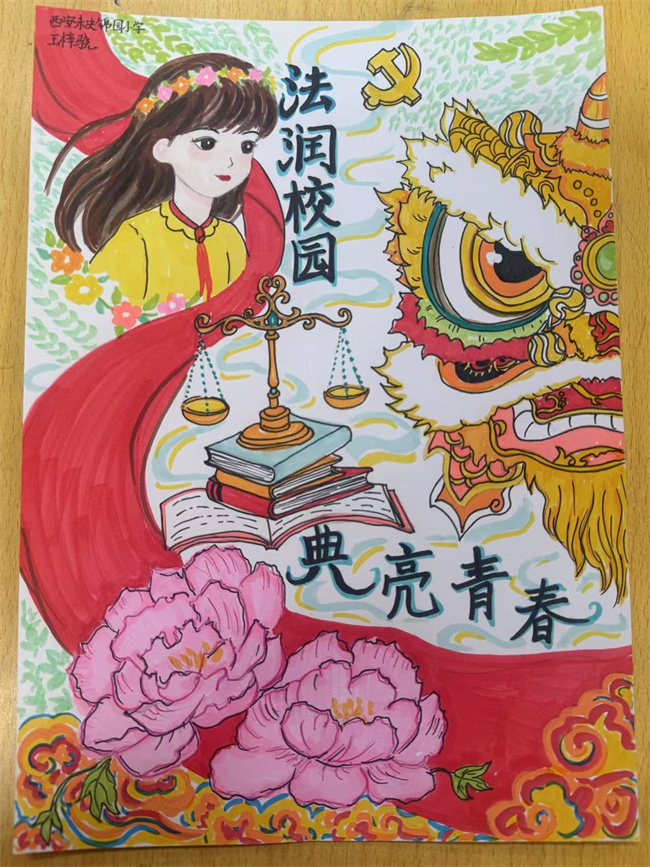 西安未央锦园小学
王梓骁
法润校园
典亮青春